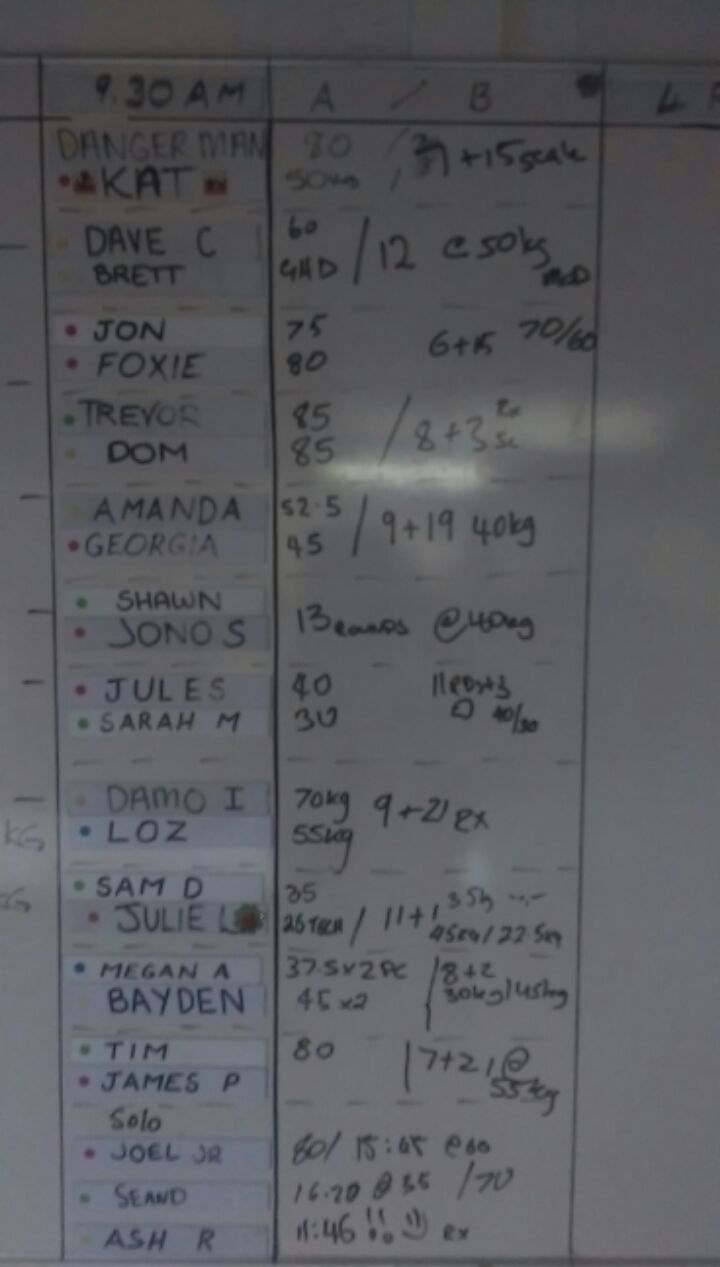 9.30 AM A / B
DANGER MAN 80 / + 15 scale
KAT 50kg
DAVE C 60 / 12 @ 50kg
BRETT GHD MOD
JON 75 6+15 70/60
FOXIE 80
TREVOR 85 / 8+3 Rx
DOM 85 Sc
AMANDA 52.5 / 9+19 40kg
GEORGIA 45
SHAWN 13 ROUNDS @ 40kg
JONO S
JULES 40
SARAH M 30 40/30
DAMO I 70kg 9+21 RX
LOZ 55kg
SAM D 35 / 11+1
JULIE L 26 TECH 45kg/22.5kg
MEGAN A 37.5x2 PC 8+2
BAYDEN 45 x2 30kg/45kg
TIM 80 7+21 @
JAMES P 55kg
Solo
JOEL JR 80/ 15:45 @60
SEAN D 16.20 @ 55 /70
ASH R 11:46 !! RX